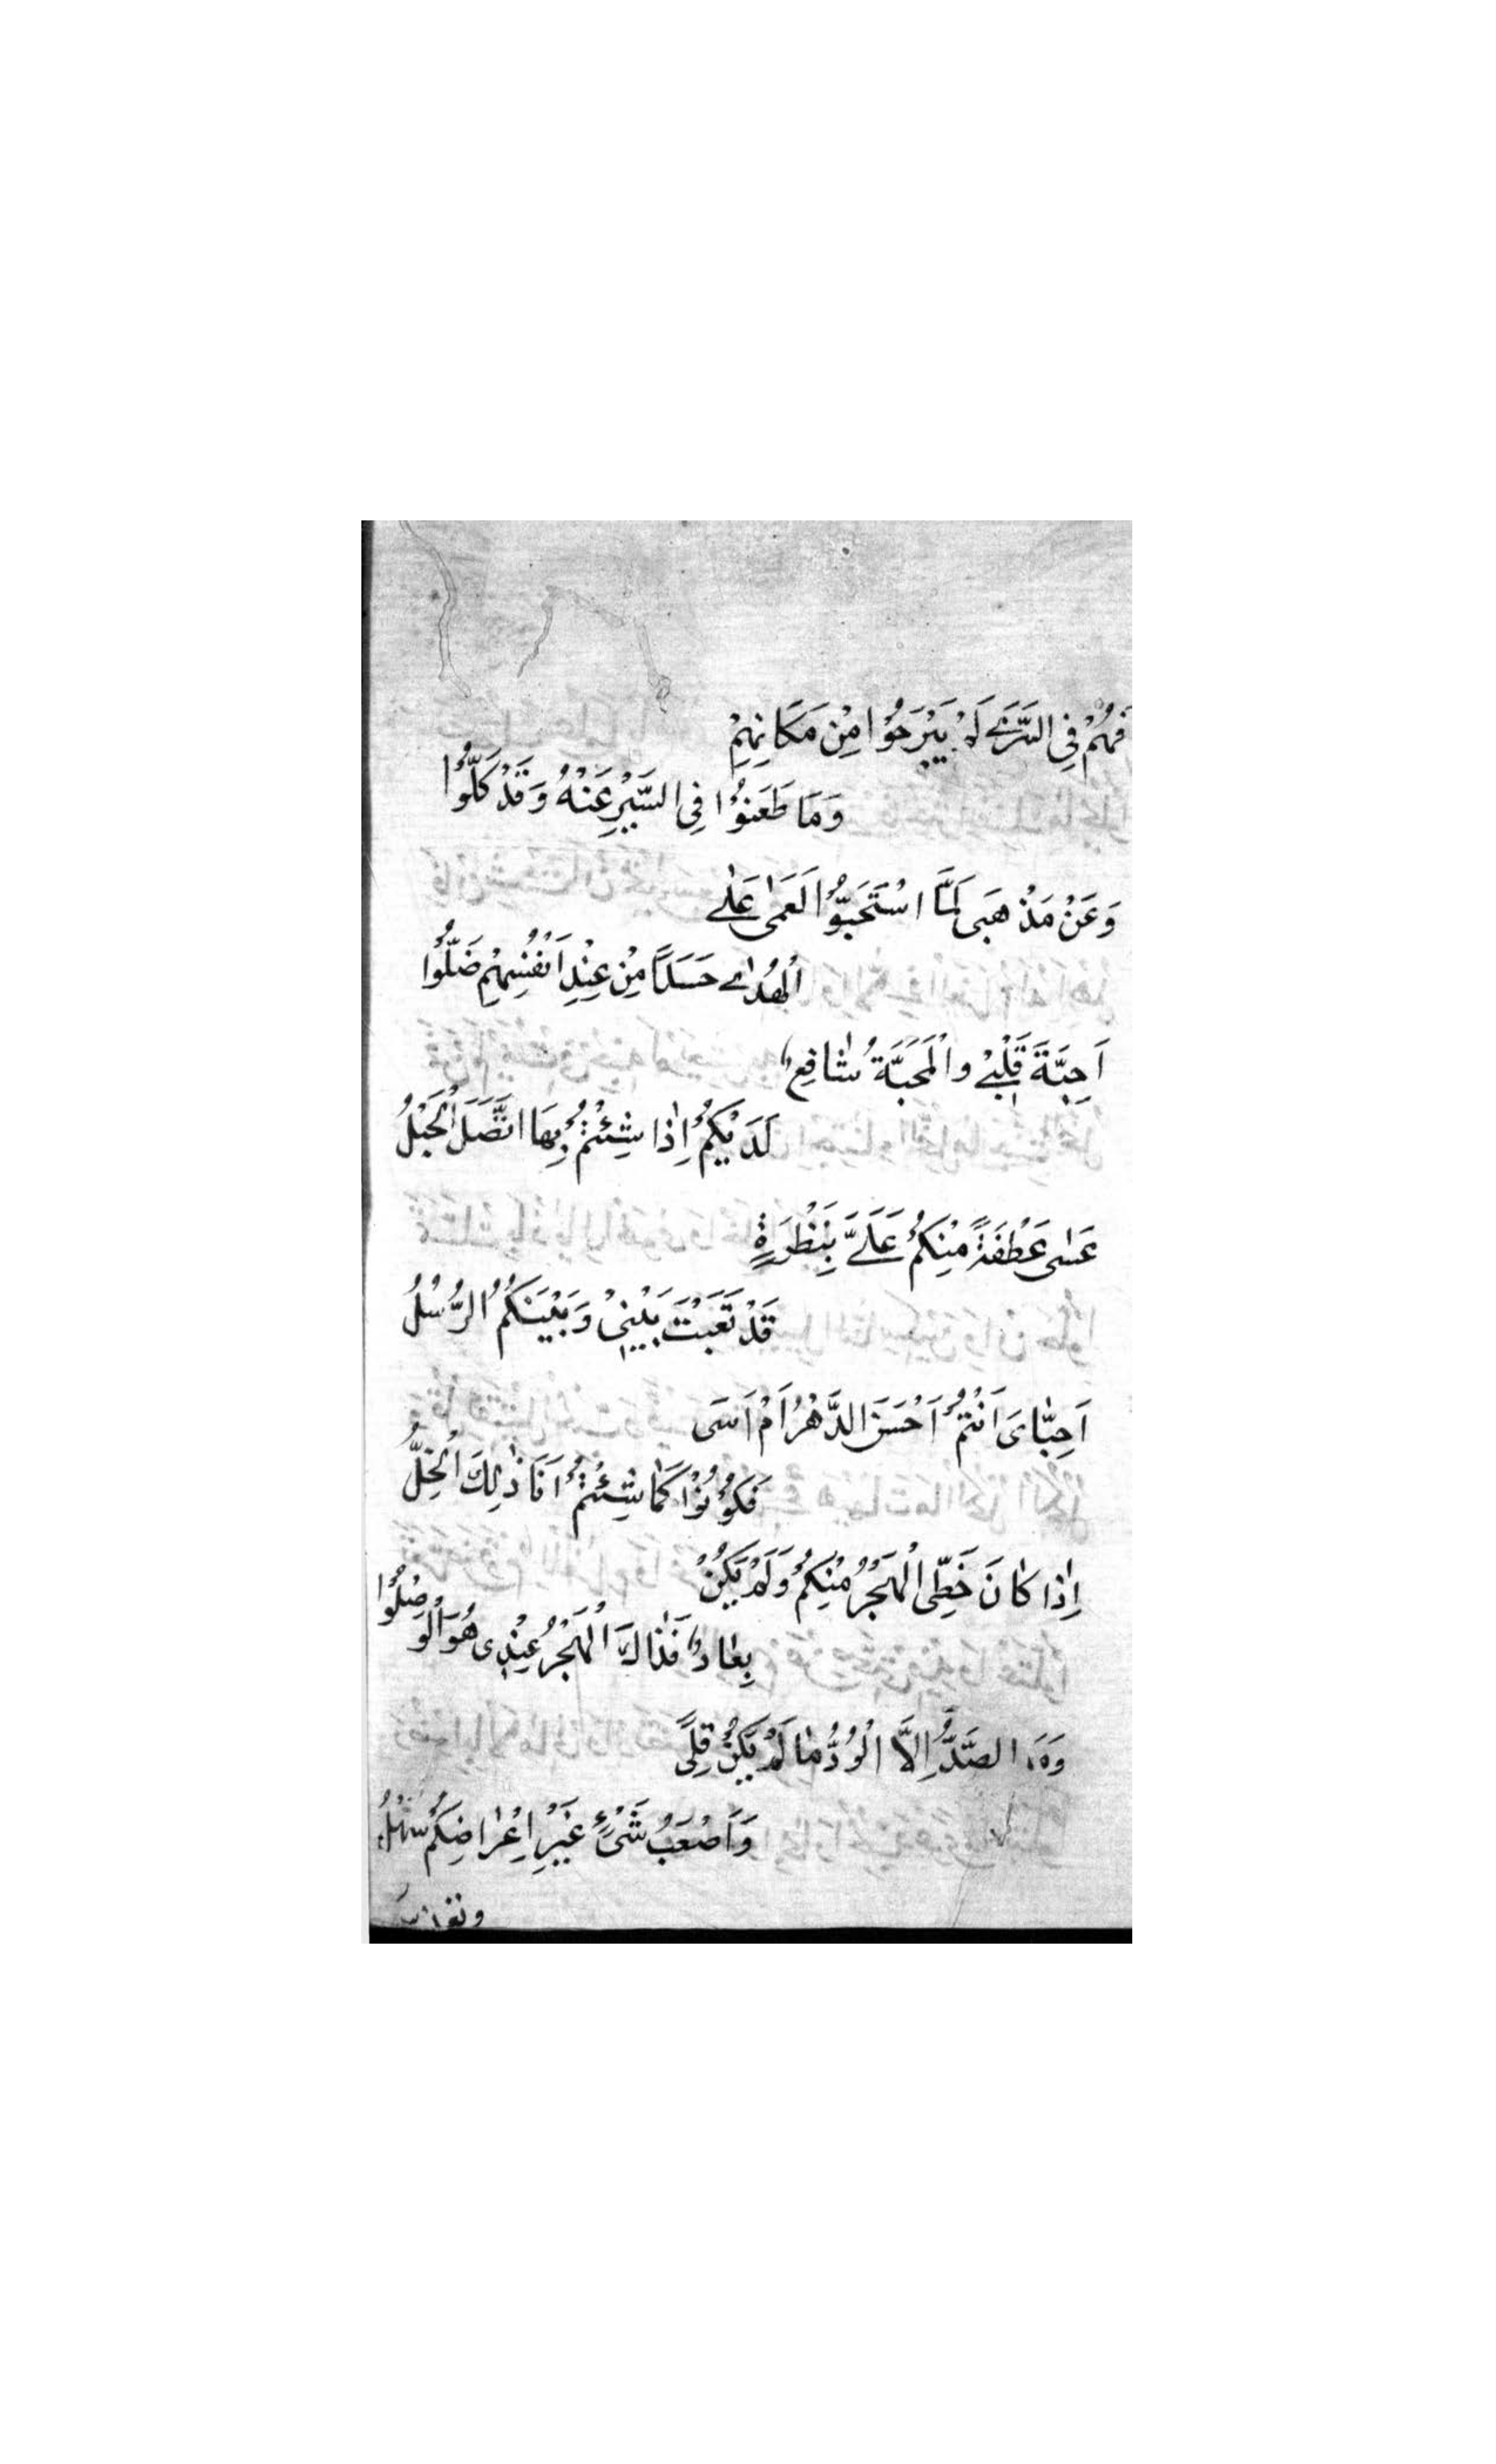 فَهُمْ فِي السَّرَىٰ لَمْ يَبْرَحُوْا مِنْ مَكَانِهِمْ
وَمَا طَعَنُوْا فِي السَّيْرِ عَنْهُ وَقَدْ كَلُّوْا
وَعَنْ مَذْهَبِى لَمَّا اسْتَحَبُّوْا لَعَمٰى عَلٰى
الْهُدٰى حَسَدًا مِنْ عِنْدِ اَنْفُسِهِمْ ضَلُّوْا
اَحِبَّةَ قَلْبِيْ والْمَحَبَّةُ شٰافِعِ
لَدَيْكُمْ اِذٰا شِئْتُمْ بِهَا اتَّصَلَ الْحَبْلُ
عَسٰى عَطْفَةً مِنْكُمْ عَلَيَّ بِنَظْرَةٍ
قَدْ تَعَبَتْ بَيْنِيْ وَبَيْنَكُمُ الرُّسُلُ
اَحِبّٰاىَ اَنْتُمْ اَحْسَنَ الدَّهْرُ اَمْ اَسَى
فَكُوْنُوْا كَمٰا شِئْتُمْ اَنَا ذٰلِكَ الْخِلُّ
اِذٰا كٰانَ حَظِّى الْهَجْرُ مِنْكُمْ وَلَمْ يَكُنْ
بِعٰادٌ فَذٰاكَ الْهَجْرُ عِنْدِى هُوَ الْوَصْلُوْا
الصَّدُّ اِلَّا الْوُدُّ مٰا لَمْ يَكُنْ قِلًى
وَاَصْعَبُ شَىْءٍ غَيْرِ اِعْرٰاضِكُمْ سَهْلُ